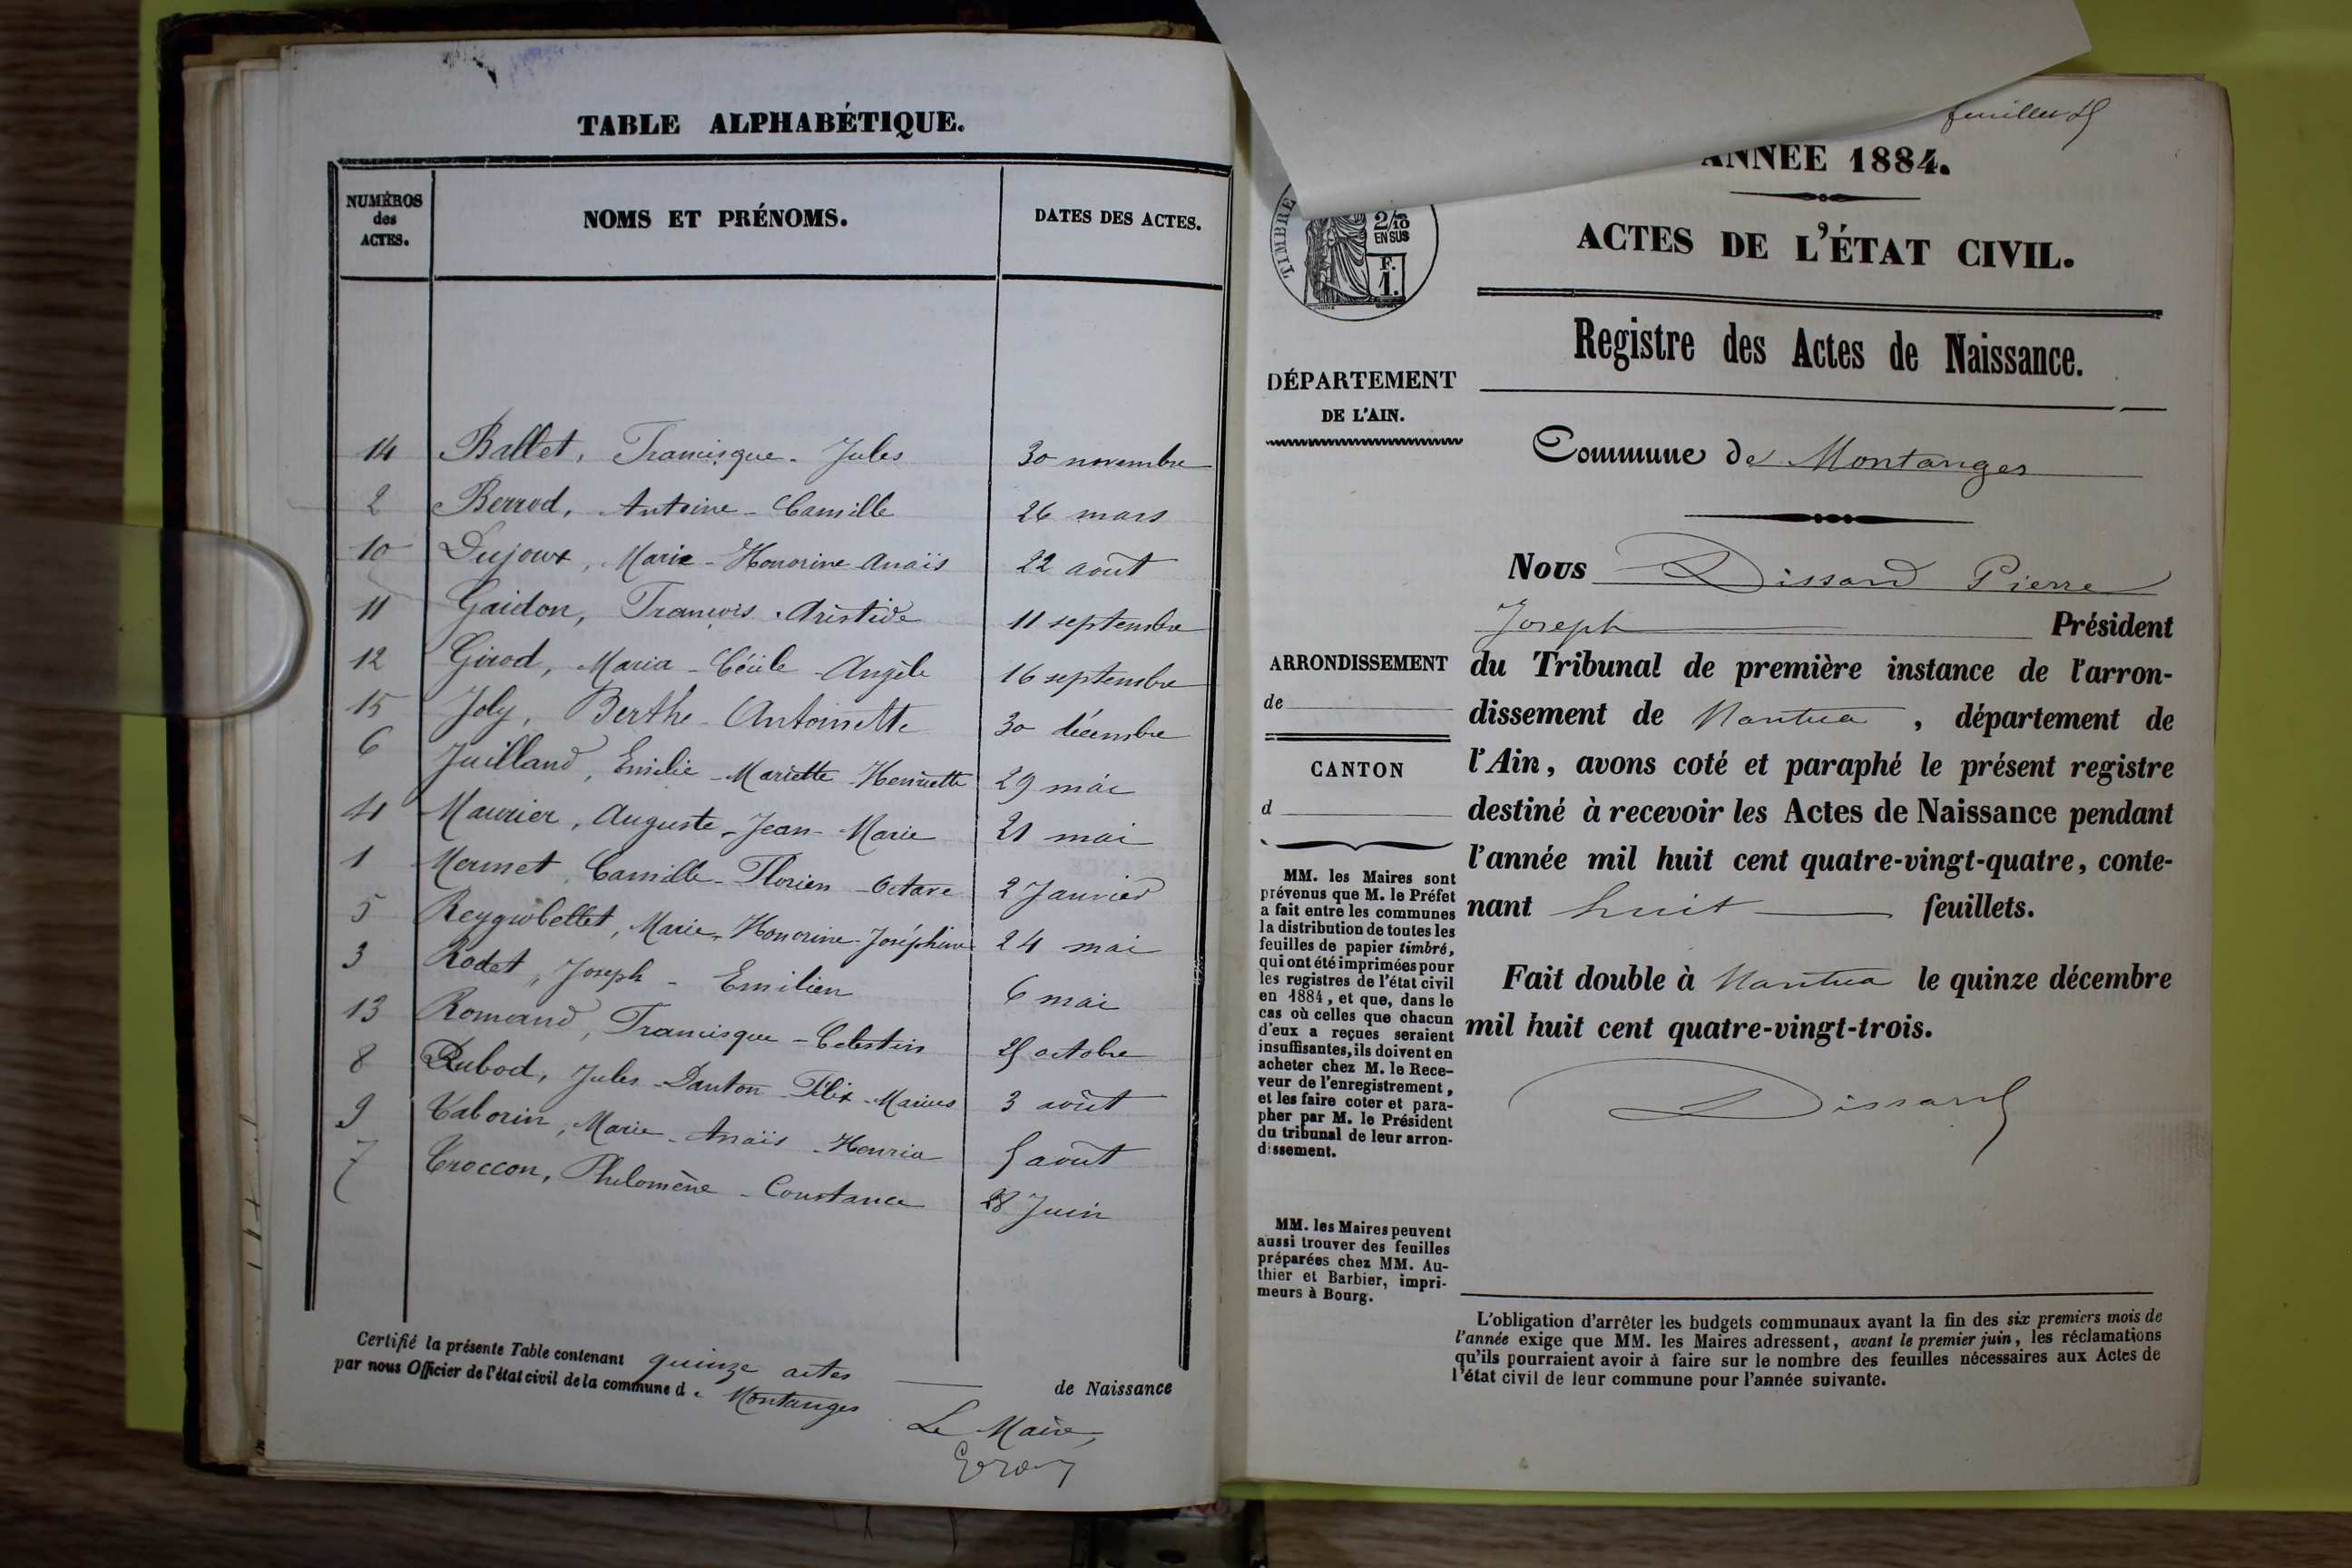 TABLE ALPHABÉTIQUE.
NUMÉROS
des
ACTES.
NOMS ET PRÉNOMS.
DATES DES ACTES.
14 Ballet, Francisque - Jules 30 novembre
2 Berrod, Antoine - Camille 26 mars
10 Dujoux, Marie - Honorine Anaïs 22 août
11 Gaidon, François - Aristide 11 septembre
12 Girod, Maria - Cécile - Angèle 16 septembre
15 Joly, Berthe - Antoinette 30 décembre
6 Juilland, Emilie - Mariette - Henriette 29 mai
4 Maurier, Auguste - Jean - Marie 21 mai
1 Mermet, Camille - Florien - Octave 2 Janvier
5 Reygrobellet, Marie - Honorine - Joséphine 24 mai
3 Rodet, Joseph - Emilien 6 mai
13 Romand, Francisque - Celestin 25 octobre
8 Rubod, Jules - Danton - Félix - Marius 3 août
9 Taborin, Marie - Anaïs - Henria 5 août
7 Troccon, Philomène - Constance 28 Juin
Certifié la présente Table contenant quinze actes de Naissance
par nous Officier de l'état civil de la commune de Montanges
Le Maire,
feuillet
ANNÉE 1884.
TIMBRE
2/10
EN SUS
F.
1.
ACTES DE L'ÉTAT CIVIL.
Registre des Actes de Naissance.
DÉPARTEMENT
DE L'AIN.
Commune de Montanges
Nous Dissard Pierre
Joseph Président
du Tribunal de première instance de l'arron-
dissement de Nantua, département de
l'Ain, avons coté et paraphé le présent registre
destiné à recevoir les Actes de Naissance pendant
l'année mil huit cent quatre-vingt-quatre, conte-
nant huit feuillets.
Fait double à Nantua le quinze décembre
mil huit cent quatre-vingt-trois.
Dissard
ARRONDISSEMENT
de
CANTON
d
MM. les Maires sont
prévenus que M. le Préfet
a fait entre les communes
la distribution de toutes les
feuilles de papier timbré,
qui ont été imprimées pour
les registres de l'état civil
en 1884, et que, dans le
cas où celles que chacun
d'eux a reçues seraient
insuffisantes, ils doivent en
acheter chez M. le Rece-
veur de l'enregistrement,
et les faire coter et para-
pher par M. le Président
du tribunal de leur arron-
dissement.
MM. les Maires peuvent
aussi trouver des feuilles
préparées chez MM. Au-
thier et Barbier, impri-
meurs à Bourg.
L'obligation d'arrêter les budgets communaux avant la fin des six premiers mois de
l'année exige que MM. les Maires adressent, avant le premier juin, les réclamations
qu'ils pourraient avoir à faire sur le nombre des feuilles nécessaires aux Actes de
l'état civil de leur commune pour l'année suivante.